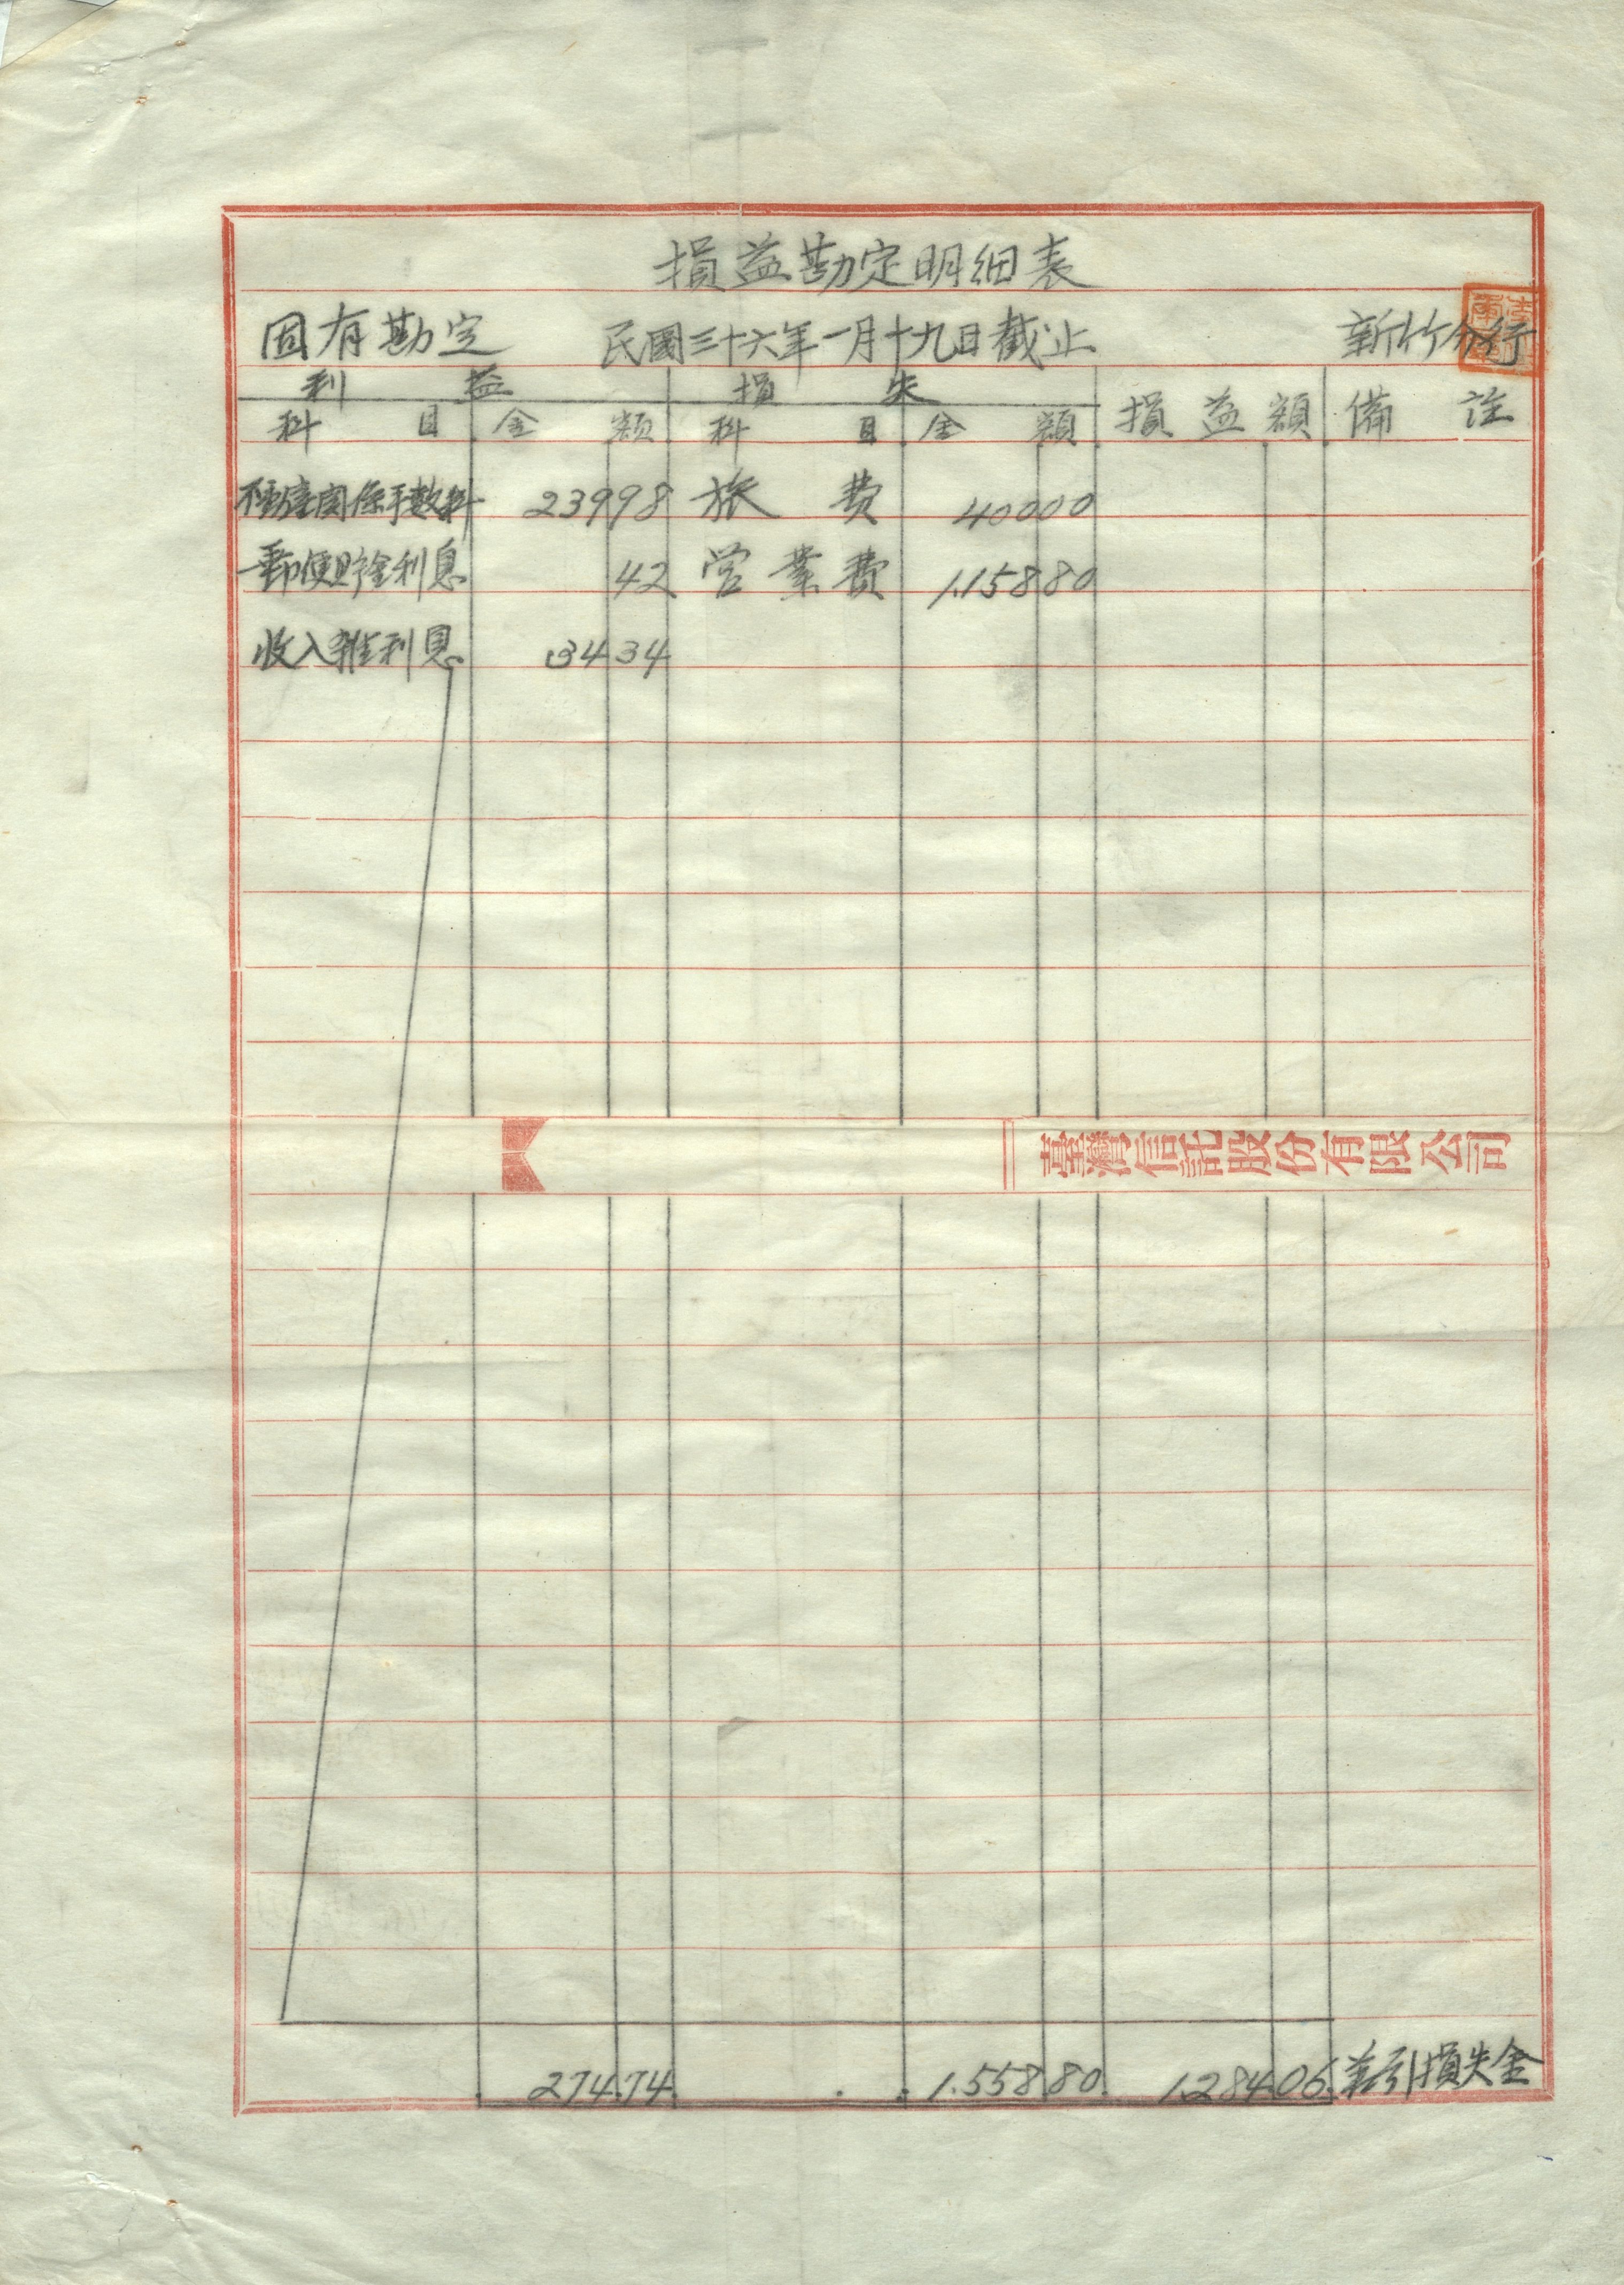 損益勘定明細表
固有勘定 民國三十六年一月十九日截止 新竹分行
利益 損失
科目 金額 科目 金額 損益額 備註
不動產関係手数料 23998 旅費 40000
郵便貯金利息 42 営業費 1,15880
收入雜利息 3434
臺灣信託股份有限公司
274.74 1.558.80 1.284.06 差引損失金